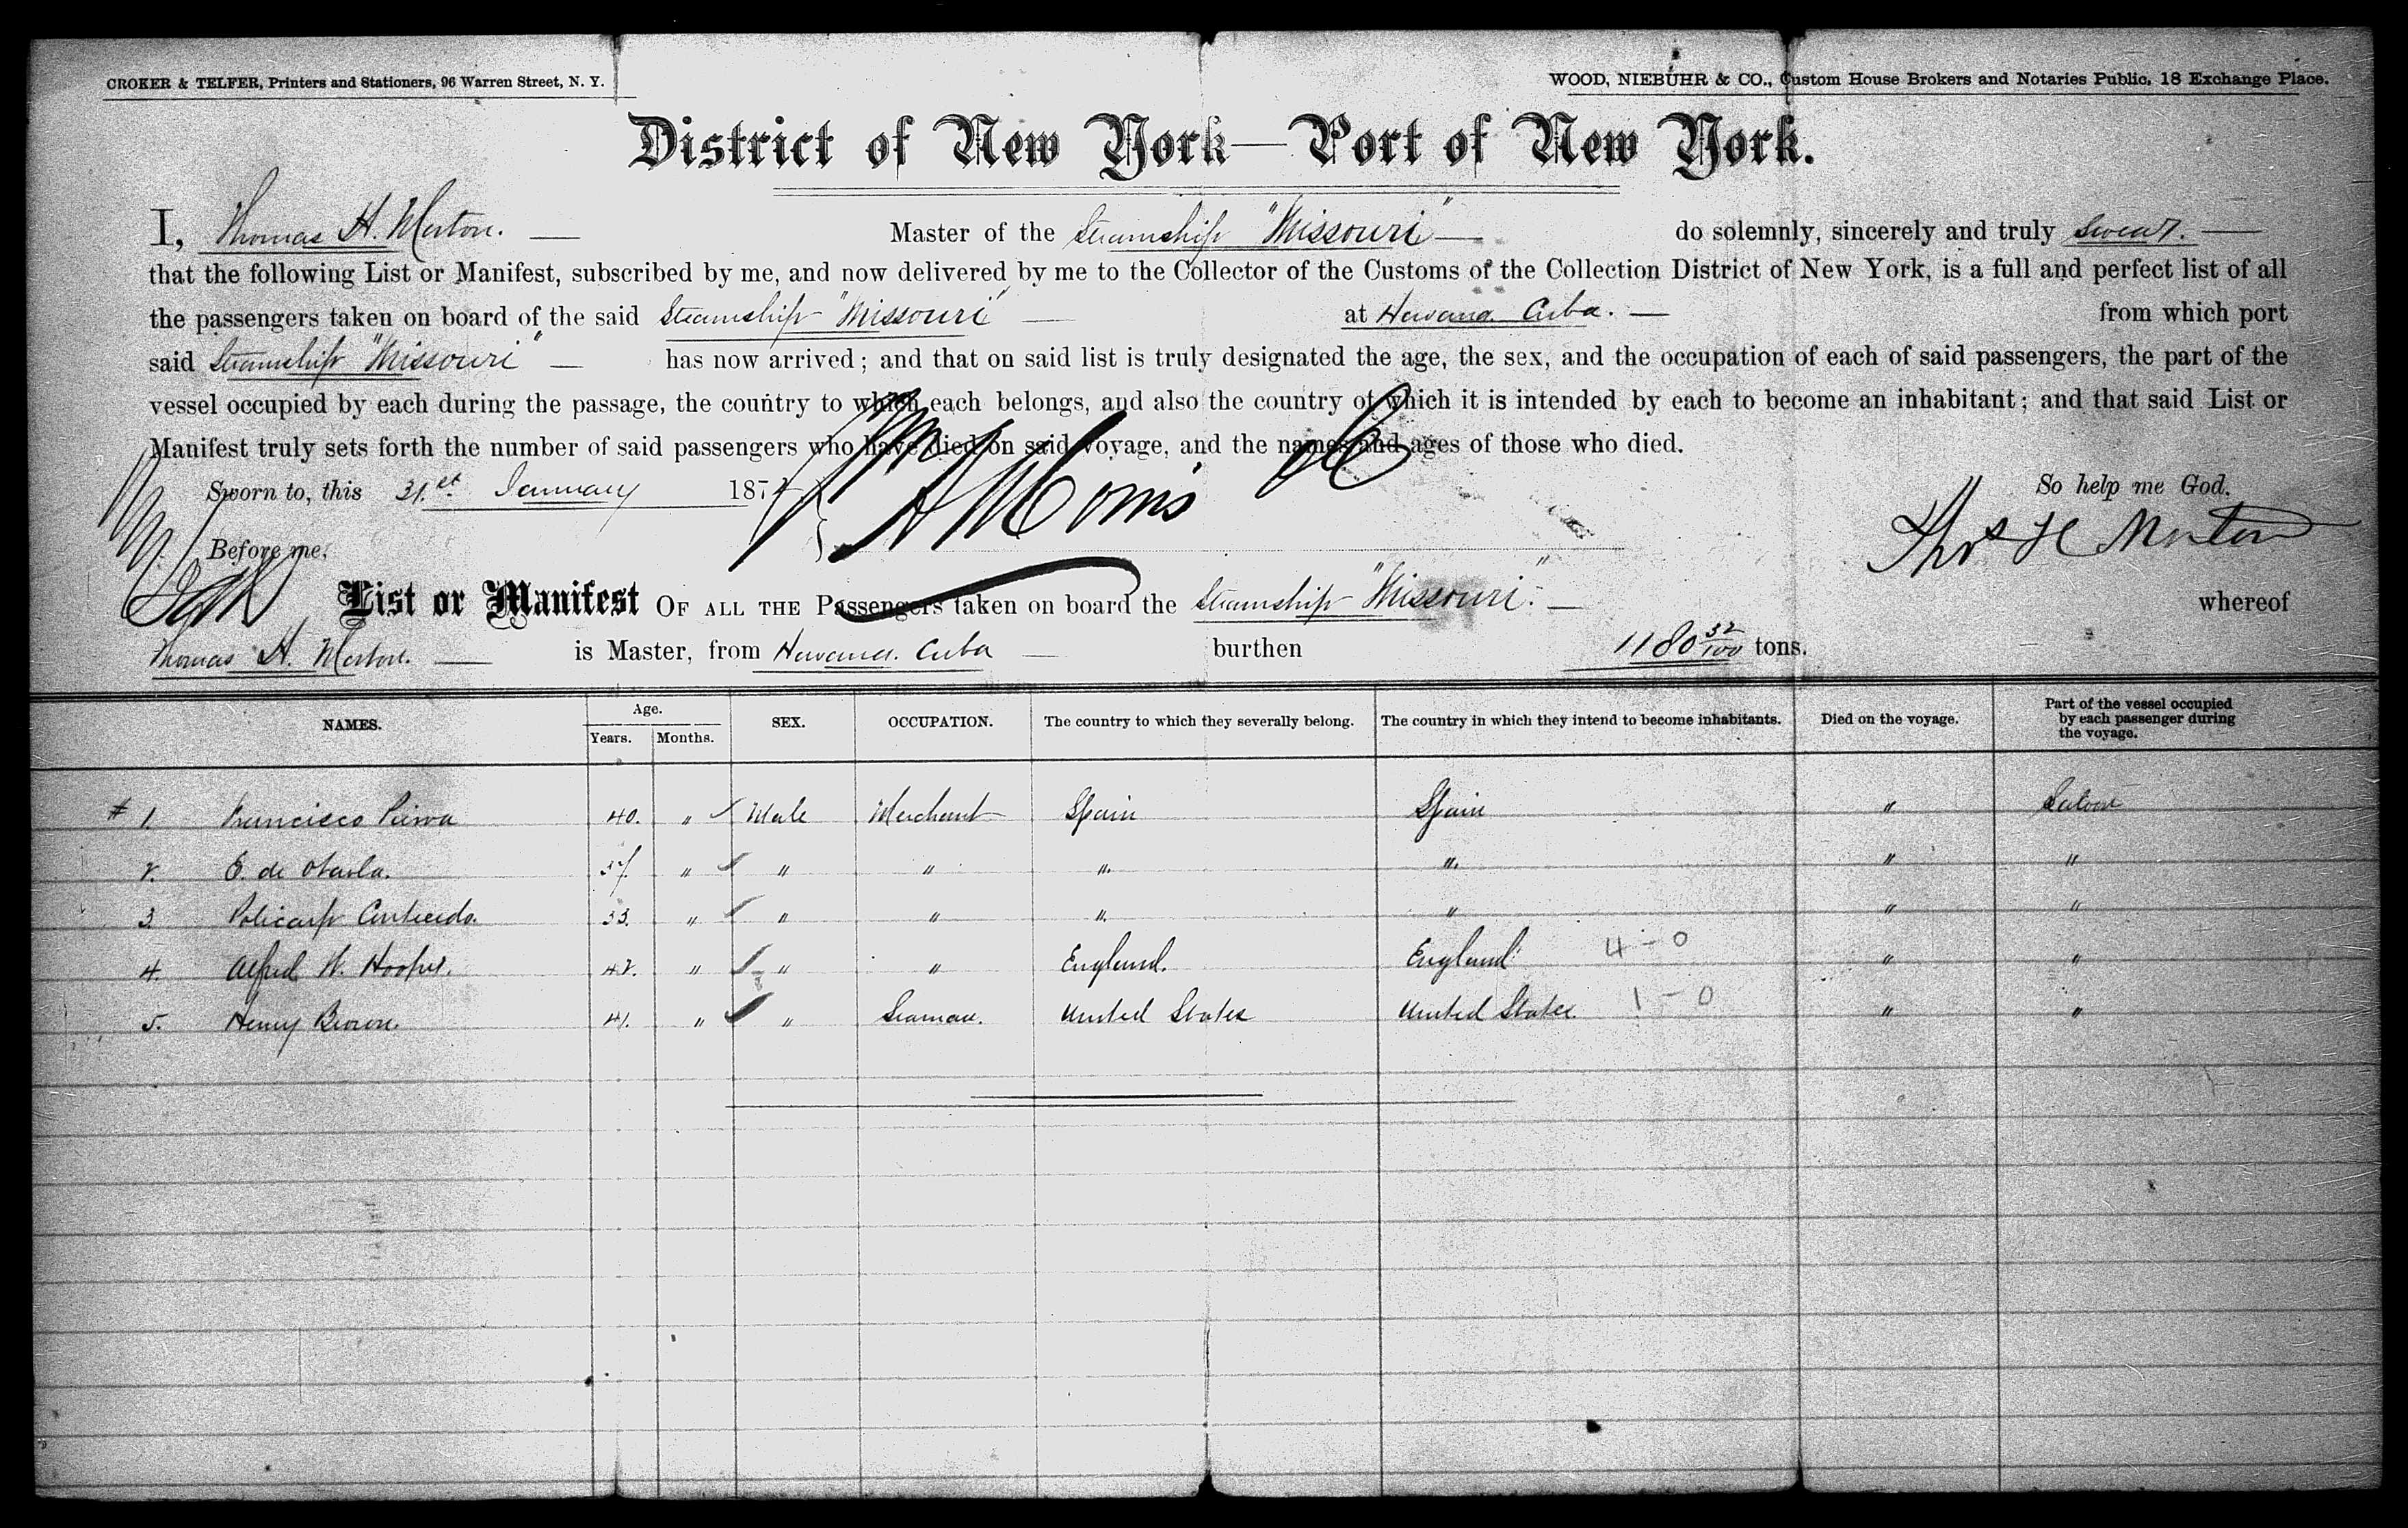 CROKER & TELFER, Printers and Stationers, 96 Warren Street, N. Y.
WOOD, NIEBUHR & CO., Custom House Brokers and Notaries Public, 18 Exchange Place.
District of New York—Port of New York.
I, Thomas H. Morton. — Master of the Steamship "Missouri" — do solemnly, sincerely and truly swear. —
that the following List or Manifest, subscribed by me, and now delivered by me to the Collector of the Customs of the Collection District of New York, is a full and perfect list of all
the passengers taken on board of the said Steamship "Missouri" — at Havana Cuba. — from which port
said Steamship "Missouri" — has now arrived; and that on said list is truly designated the age, the sex, and the occupation of each of said passengers, the part of the
vessel occupied by each during the passage, the country to which each belongs, and also the country of which it is intended by each to become an inhabitant; and that said List or
Manifest truly sets forth the number of said passengers who have died on said voyage, and the names and ages of those who died.
Sworn to, this 31st January 187
So help me God.
Before me,
Thos H Morton
List or Manifest OF ALL THE Passengers taken on board the Steamship "Missouri". — whereof
Thomas H. Morton. — is Master, from Havana. Cuba — burthen 1180 32/100 tons.
NAMES. Age. Years. Months. SEX. OCCUPATION. The country to which they severally belong. The country in which they intend to become inhabitants. Died on the voyage. Part of the vessel occupied by each passenger during the voyage.
# 1. Francisco 40. " Male Merchant Spain Spain " Saloon
2. E. de 37. " " " ". ". " "
3. Policarp 33. " " " ". " " "
4. Alfred W. Hooper. 42. " " " England. England 4 - 0 " "
5. Henry Brown. 41. " " Seaman. United States United States 1 - 0 " "